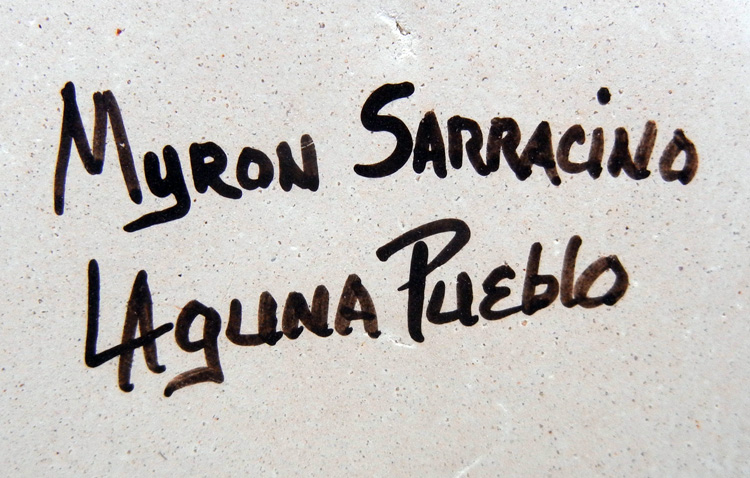 Myron Sarracino
Laguna Pueblo